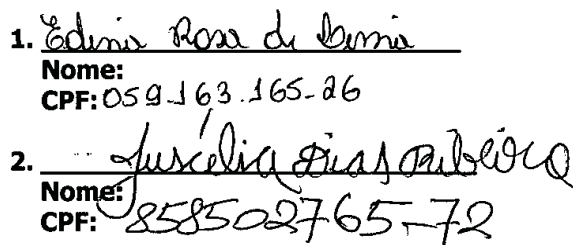 1. Edinir Rosa de
Nome:
CPF: 059.163.165-26
2. Juscélia Dias Ribeiro
Nome:
CPF: 858502765-72